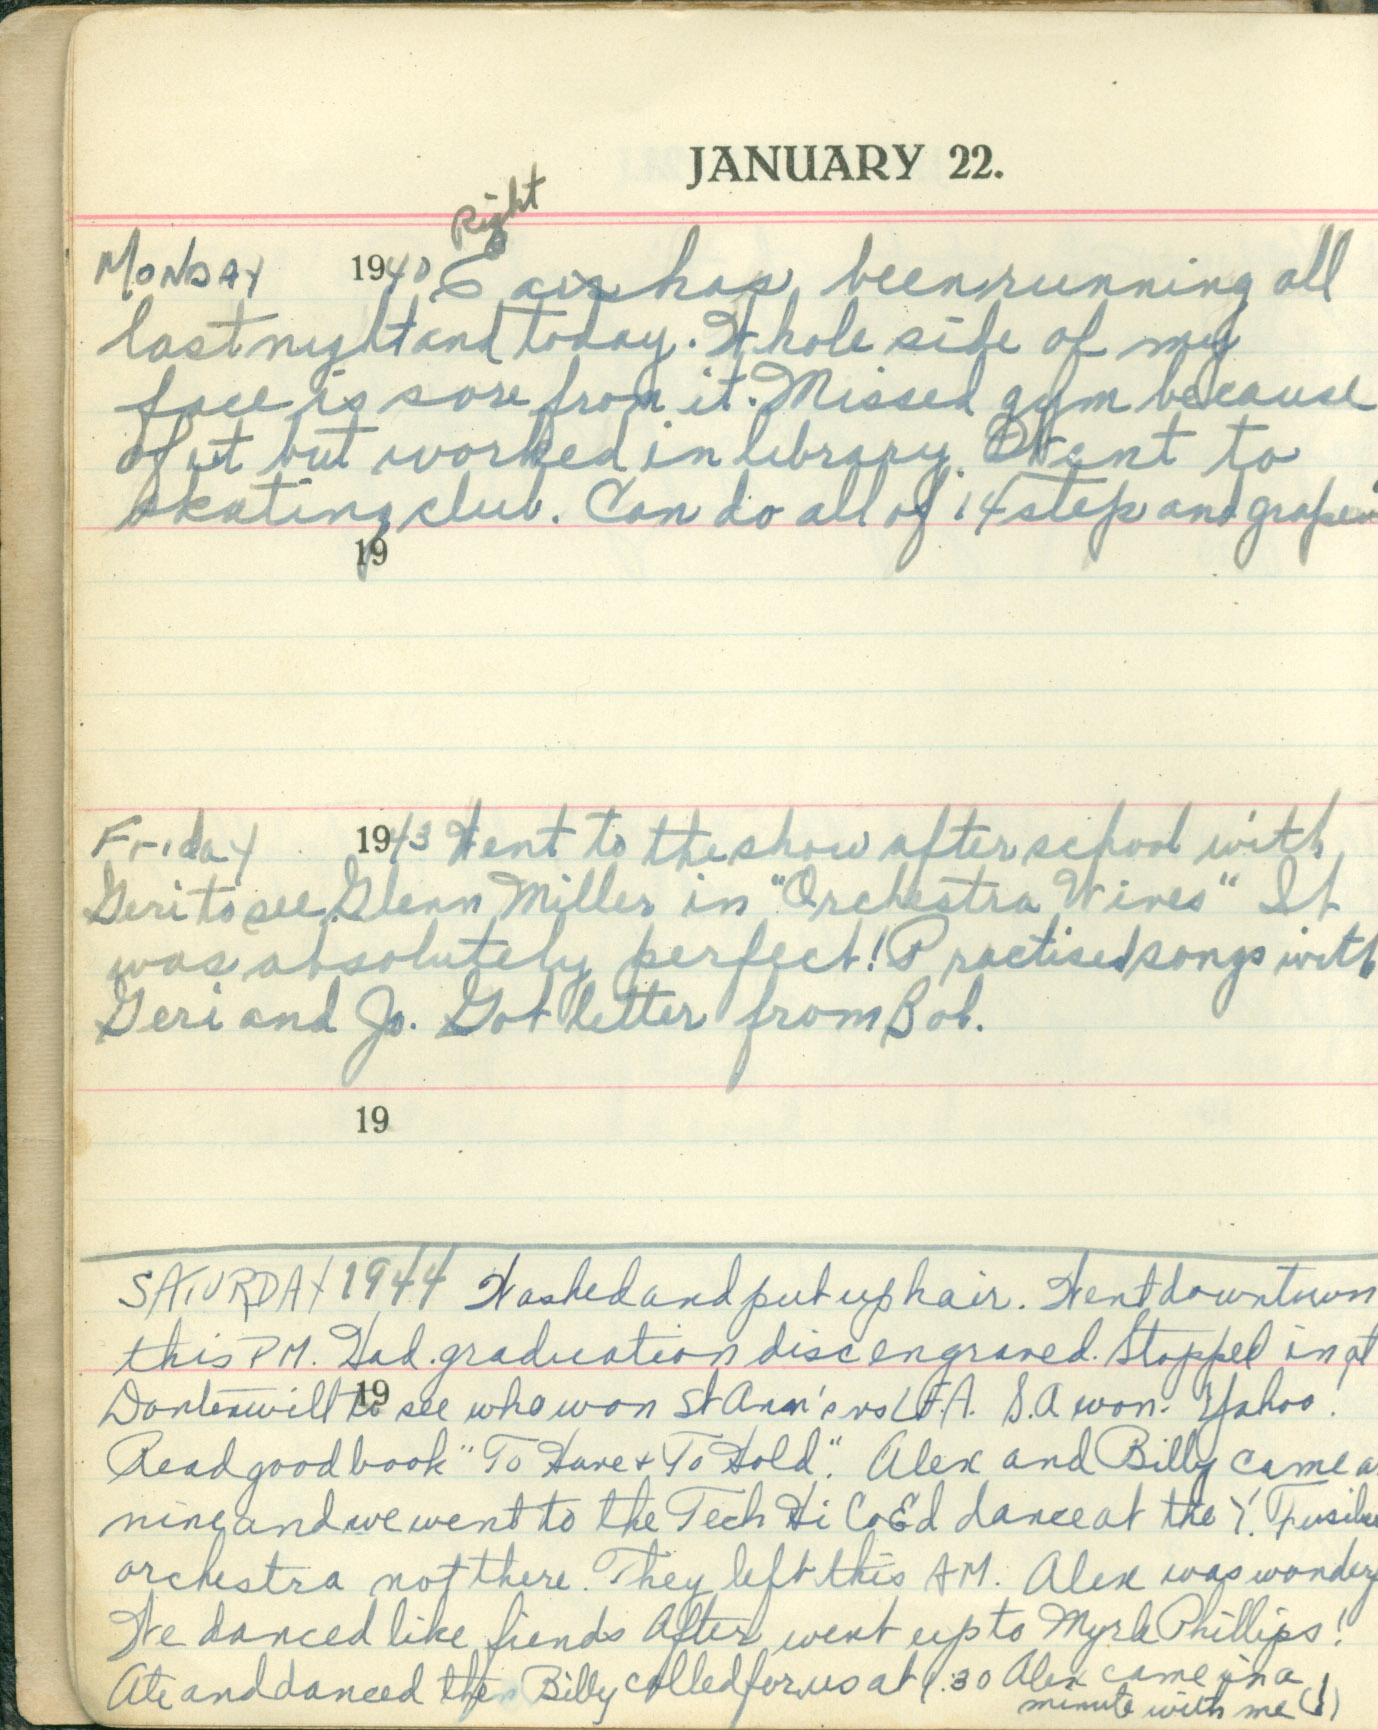 JANUARY 22.
Right
Monday 1940 Ear has been running all
last night and today. Whole side of my
face is sore from it. Missed gym because
of it but worked in library. Went to
skating club. Can do all of 14 step and
19
Friday 1943 Went to the show after school with
Geri to see Glenn Miller in "Orchestra Wives" It
was absolutely perfect! Practised songs with
Geri and Jo. Got letter from Bob.
19
SATURDAY 1944 Washed and put up hair. Went downtown
this PM. Had graduation disc engraved. Stopped in at
19
to see who won St Ann's vs S.A won. Yahoo!
Read good book "To Have & To Hold". Alex and Billy came
nine and we went to the Tech Hi CoEd dance at the Y.
orchestra not there. They left this AM. Alex was
We danced like fiends After went up to Myrle Phillips!
Ate and danced then Billy called for us at 1:30 Alex came in a
minute with me (!)